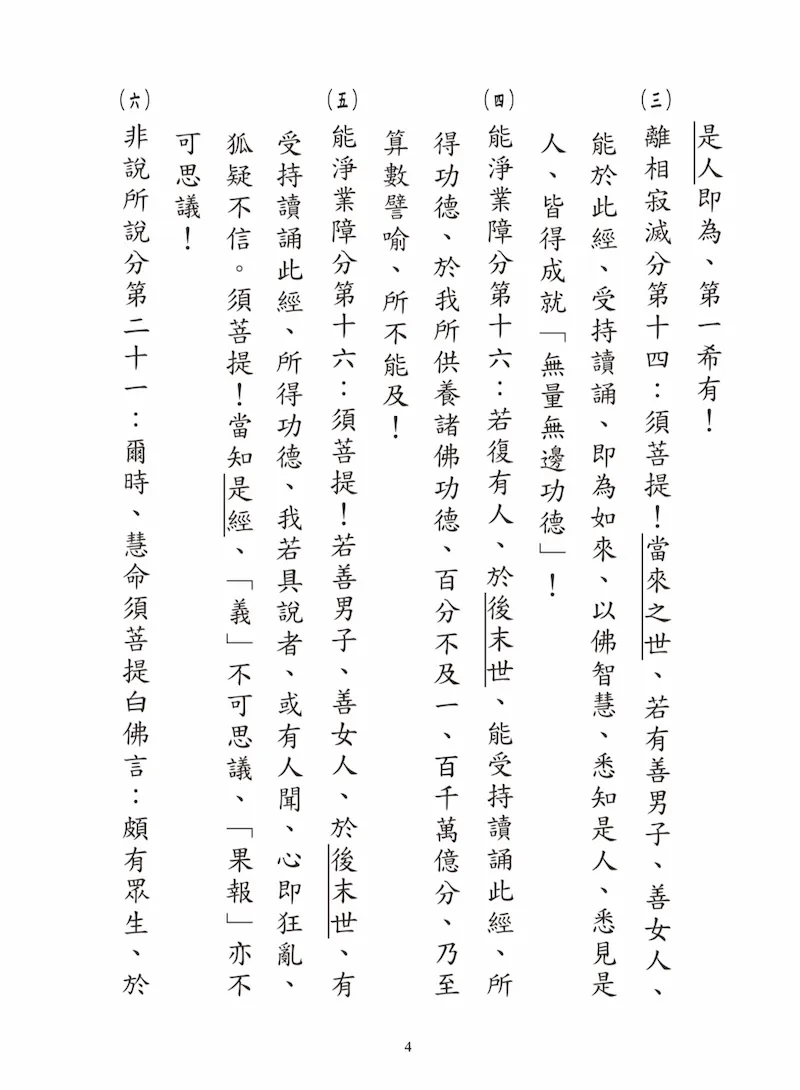 是人即為、第一希有！
（三）離相寂滅分第十四：須菩提！當來之世、若有善男子、善女人、
能於此經、受持讀誦、即為如來、以佛智慧、悉知是人、悉見是
人、皆得成就「無量無邊功德」！
（四）能淨業障分第十六：若復有人、於後末世、能受持讀誦此經、所
得功德、於我所供養諸佛功德、百分不及一、百千萬億分、乃至
算數譬喻、所不能及！
（五）能淨業障分第十六：須菩提！若善男子、善女人、於後末世、有
受持讀誦此經、所得功德、我若具說者、或有人聞、心即狂亂、
狐疑不信。須菩提！當知是經、「義」不可思議、「果報」亦不
可思議！
（六）非說所說分第二十一：爾時、慧命須菩提白佛言：頗有眾生、於
4